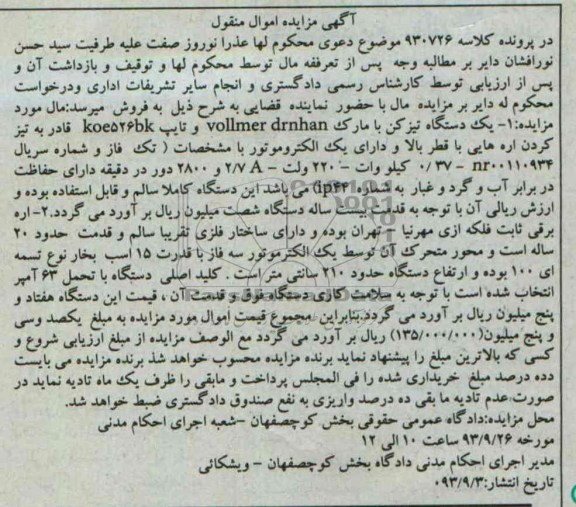 آگهی مزایده اموال منقول
در پرونده کلاسه ۹۳۰۷۲۶ موضوع دعوی محکوم لها عذرا نوروز صفت علیه طرفیت سید حسن
نورافشان دایر بر مطالبه وجه پس از تعرفقه مال توسط محکوم لها و توقیف و بازداشت آن و
پس از ارزیابی توسط کارشناس رسمی دادگستری و انجام سایر تشریفات اداری ودرخواست
محکوم له دایر بر مزایده مال با حضور نماینده قضایی به شرح ذیل به فروش میرسد:مال مورد
مزایده:۱- یک دستگاه تیزکن با مارک vollmer drnhan و تایپ koe۵۲۶bk قادر به تیز
کردن اره هایی با قطر بالا و دارای یک الکتروموتور با مشخصات ( تک فاز و شماره سریال
nr۰۰۱۱۰۹۳۴ – ۰/۳۷ کیلو وات – ۲۲۰ ولت – ۲/۷ A و ۲۸۰۰ دور در دقیقه دارای حفاظت
در برابر آب و گرد و غبار به شماره ip۴۴) می باشد این دستگاه کاملا سالم و قابل استفاده بوده و
ارزش ریالی آن با توجه به قدمت بیست ساله دستگاه شصت میلیون ریال بر آورد می گردد.۲-اره
برقی ثابت فلکه ازی مهرنیا – تهران بوده و دارای ساختار فلزی تقریبا سالم و قدمت حدود ۲۰
ساله است و محور متحرک آن توسط یک الکتروموتور سه فاز با قدرت ۱۵ اسب بخار نوع تسمه
ای ۱۰۰ بوده و ارتفاع دستگاه حدود ۲۱۰ سانتی متر است . کلید اصلی دستگاه با تحمل ۶۳ آمپر
انتخاب شده است با توجه به سلامت کاری دستگاه فوق و قدمت آن ، قیمت این دستگاه هفتاد و
پنج میلیون ریال بر آورد می گردد.بنابراین مجموع قیمت اموال مورد مزایده به مبلغ یکصد وسی
و پنج میلیون(۱۳۵/۰۰۰/۰۰۰) ریال بر آورد می گردد مع الوصف مزایده از مبلغ ارزیابی شروع و
کسی که بالاترین مبلغ را پیشنهاد نماید برنده مزایده محسوب خواهد شذ برنده مزایده می بایست
دده درصد مبلغ خریداری شده را فی المجلس پرداخت و مابقی را ظرف یک ماه تادیه نماید در
صورت عدم تادیه ما بقی ده درصد واریزی به نفع صندوق دادگستری ضبط خواهد شد.
محل مزایده:دادگاه عمومی حقوقی بخش کوچصفهان –شعبه اجرای احکام مدنی
مورخه ۹۳/۹/۲۶ ساعت ۱۰ الی ۱۲
مدیر اجرای احکام مدنی دادگاه بخش کوچصفهان – ویشکائی
تاریخ انتشار:۰۹۳/۹/۳